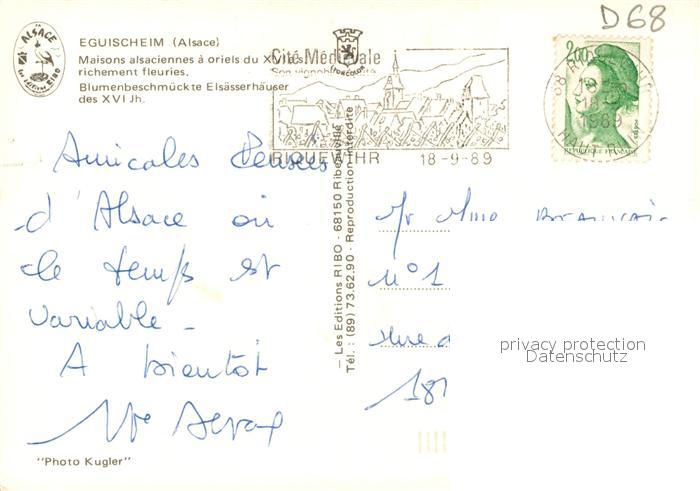 D68
ALSACE
EGUISCHEIM (Alsace)
Maisons alsaciennes à oriels du XVI
richement fleuries.
Blumenbeschmückte Elsässerhäuser
des XVI Jh.
Cité Médiévale
Son vignoble
RIQUEWIHR 18-9-89
2,00
18-9
1989
HAUT-RHIN
REPUBLIQUE FRANÇAISE
Amicales Pensées
d'Alsace où
le temps est
variable -
A bientôt
— Les Editions RIBO - 68150 Ribeauvillé
Tél. : (89) 73.62.90 - Reproduction interdite
Mr Mme
N°1
rue
181
privacy protection
Datenschutz
"Photo Kugler"